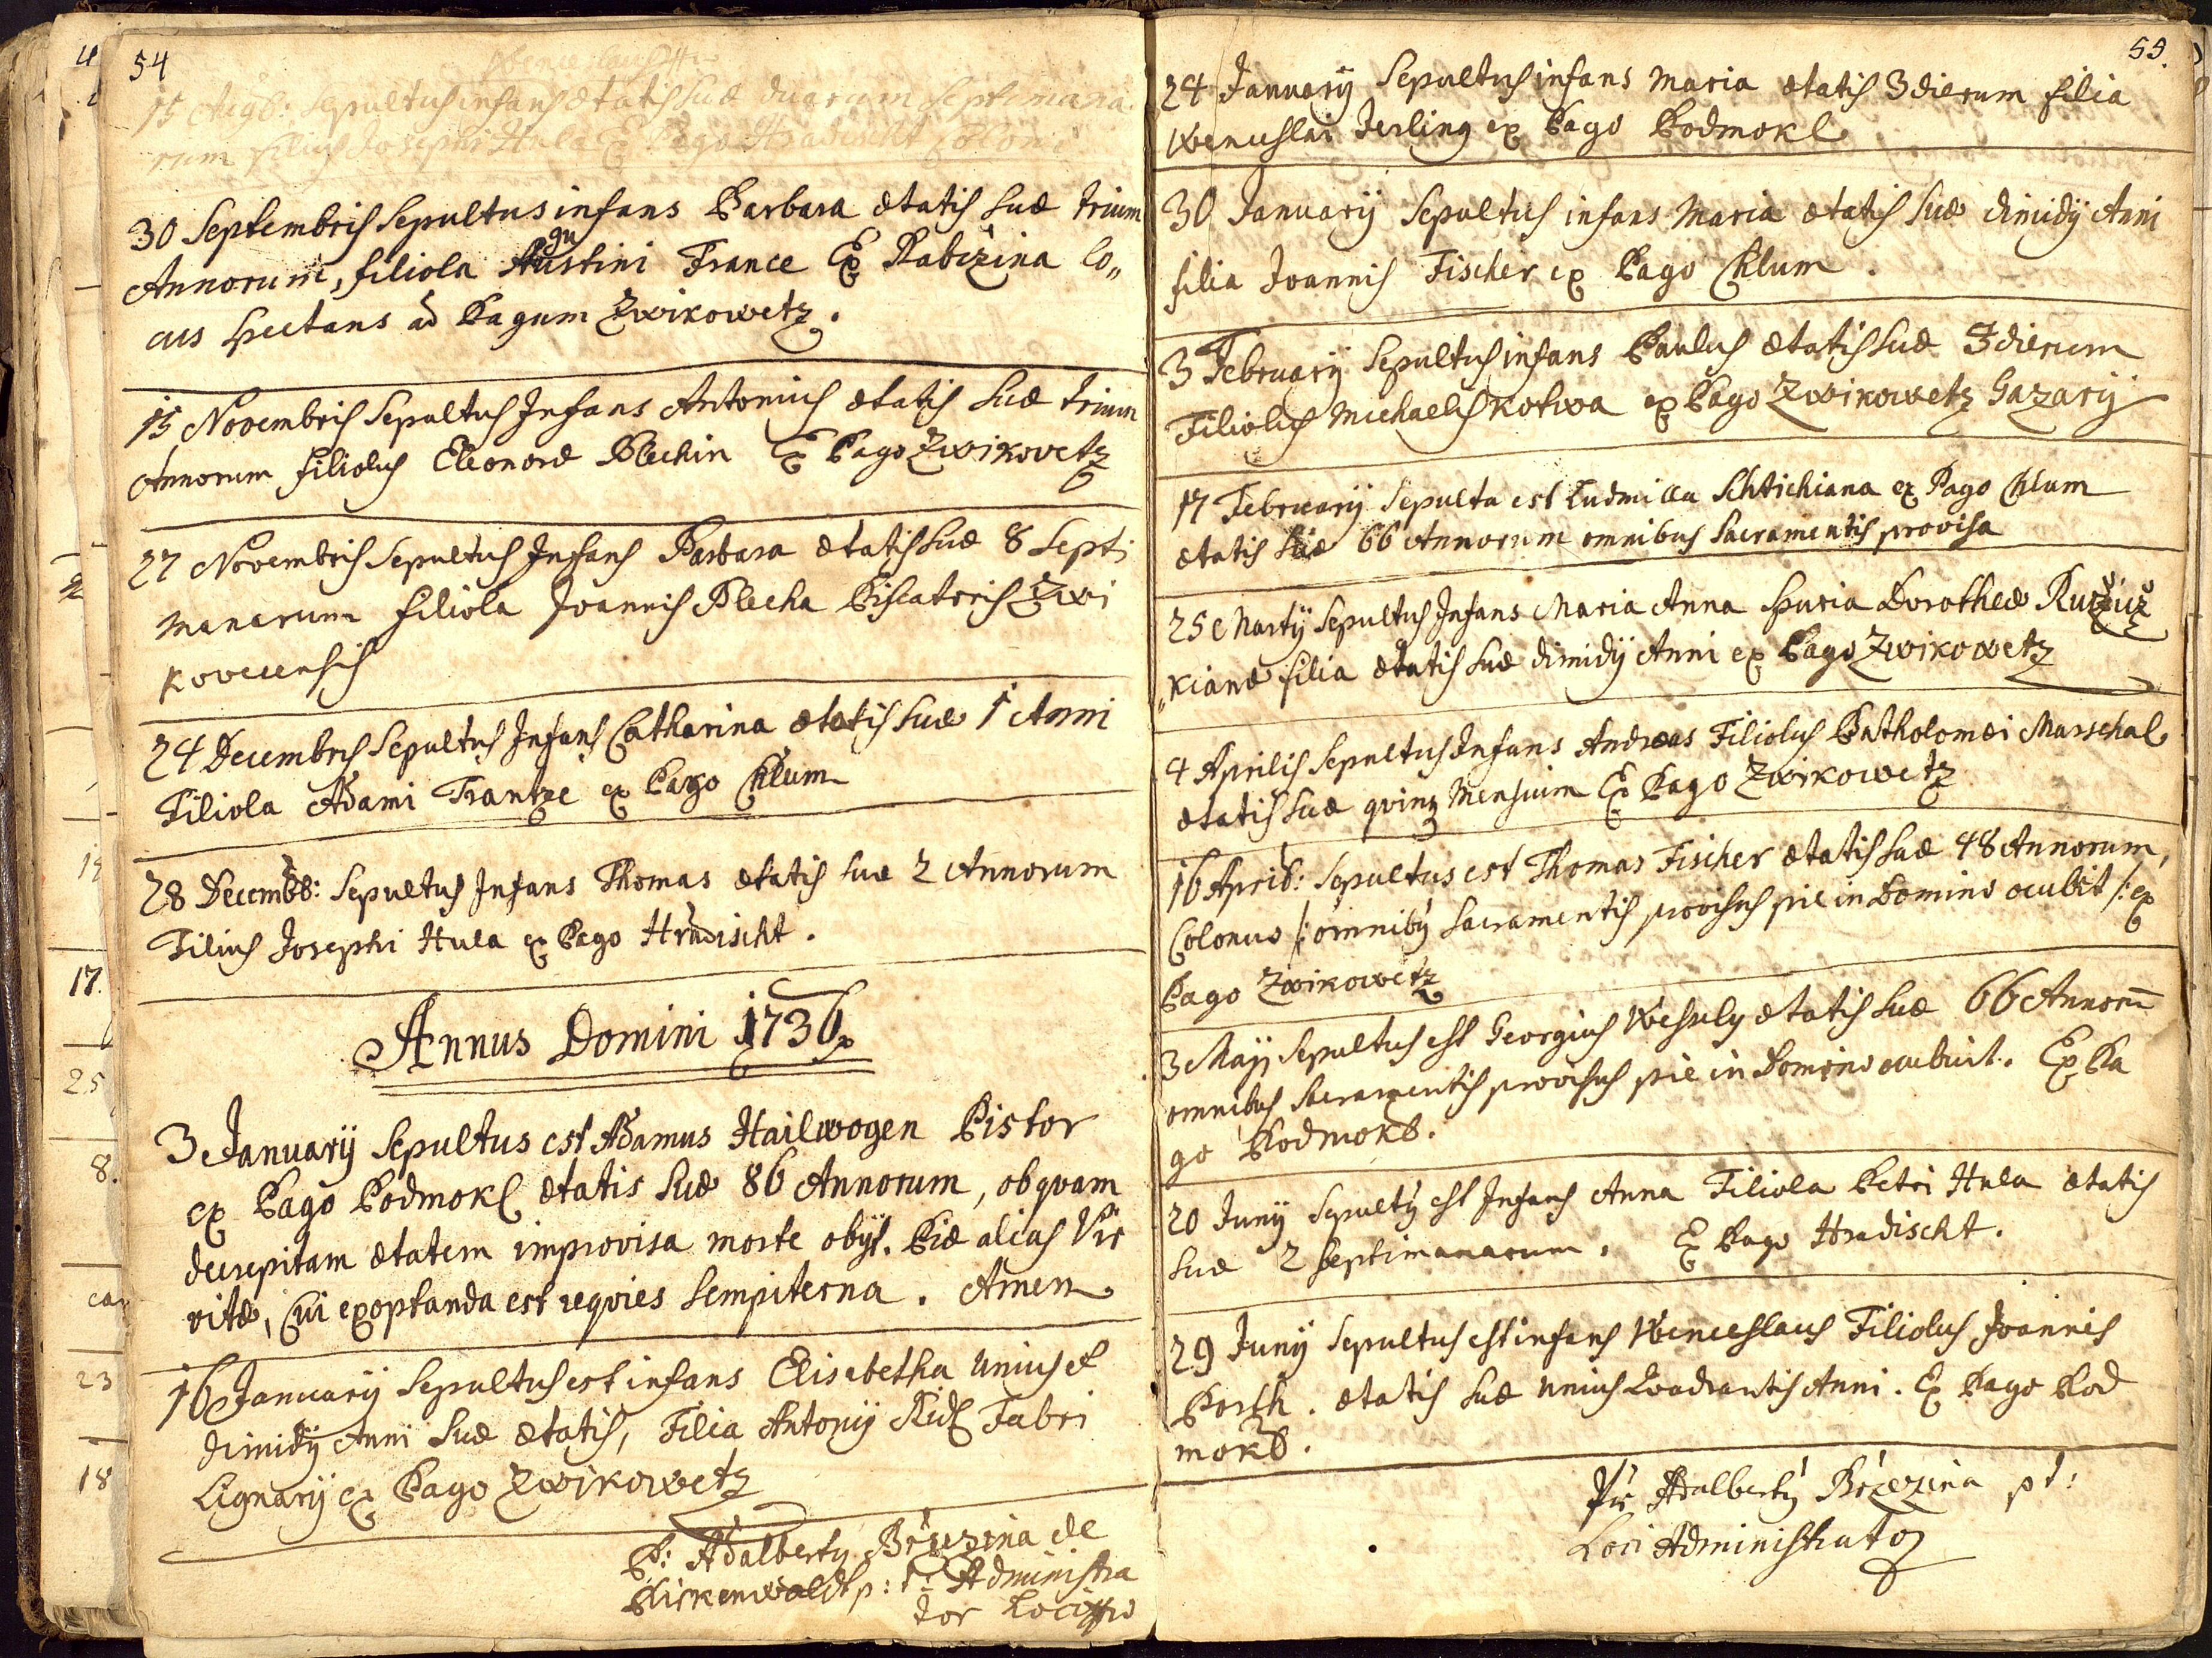 54
Wenceslaus
15 Augb: sepultus infans ætatis suæ duarum septimana
rum filius Josephi Hula Ex Pago Hradischt Coloni
30 Septembris Sepultus infans Barbara ætatis suæ trium
Annorum, filiola Augustini France Ex Rabizina lo„
cus spectans ad Pagum Zwikowetz.
15 Novembris Sepultus Infans Antonius ætatis suæ trium
Annorum filiolus Eleonoræ Blechin Ex Pago Zwikovetz
27 Novembris Sepultus Infans Barbara ætatis suæ 8 Septi
manarum filiola Joannis Blecha Piscatoris Zwi
kovecensis
24 Decembris Sepultus Infans Catharina ætatis suæ 1 Anni
Filiola Adami Frantze ex Pago Chlum
28 Decembb: Sepultus Infans Thomas ætatis suæ 2 Annorum
Filius Josephi Hula ex Pago Hradischt.
Annus Domini 1736
3 Januarij Sepultus est Adamus Hailwogen Pistor
ex Pago Podmokl ætatis suæ 86 Annorum, ob qvam
decrepitam ætatem improvisa morte obijt. Piæ alias Vir
vitæ, Cui exoptanda est reqvies sempiterna. Amen
16 Januarij Sepultus est infans Elisabetha unius et
dimidij Anni suæ ætatis, Filia Antonij Ridl Fabri
Lignarij ex Pago Zwikowetz
P: Adalberty Březina de
Birkenwaldt p: t: Administra
tor Loci
55.
24 Januarij Sepultus infans Maria ætatis 3 dierum filia
Wenceslai Jerling ex Pago Podmokl
30 Januarij Sepultus infans Maria ætatis suæ dimidij Anni
filia Joannis Fischer ex Pago Chlum.
3 Februarij Sepultus infans Paulus ætatis suæ 3 dierum
Filiolus Michaelis Kotwa ex Pago Zwikowetz Gazarij
17 Februarij Sepulta est Ludmilla Schtichiana ex Pago Chlum
ætatis suæ 66 Annorum omnibus Sacramentis provisa
25 Martij Sepultus Infans Maria Anna spuria Dorotheæ Ružiz
„kianæ filia ætatis suæ dimidij Anni ex Pago Zwikowetz
4 Aprilis Sepultus Infans Andreas Filiolus Batholomæi Marschal
ætatis suæ qvinq Mensium Ex Pago Zwikowetz
16 Aprib: Sepultus est Thomas Fischer ætatis suæ 48 Annorum,
Colonus /: omniby Sacramentis provisus pie in Domino ocubit /: ex
Pago Zwikowetz
3 Maij Sepultus est Georgius Wesuly ætatis suæ 66 Annorm̄
omnibus Sacramentis provisus pie in Domino ocubuit. Ex Pa
go Podmokb.
20 Junij Sepulty est Infans Anna Filiola Petri Hula ætatis
suæ 2 Septimanarum. Ex Pago Hradischt.
29 Junij Sepultus est infans Wenceslaus Filiolus Joannis
Porth. ætatis suæ unius Quadrantis Anni. Ex Pago Pod
mokb.
Adalberty Březina pt:
Loci Administrator